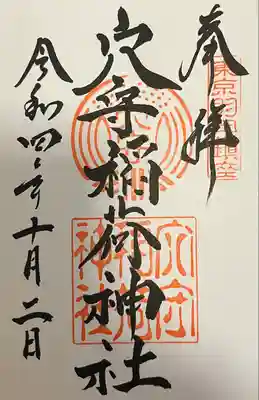 奉拝
東京羽田鎮座
穴守稲荷神社
穴守稲荷神社
令和四年十月二日